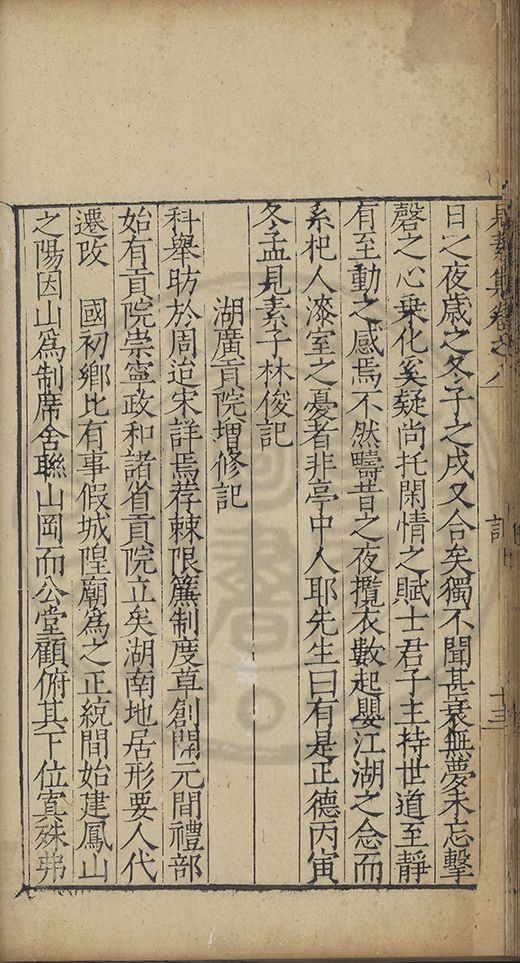 見素集卷之八 記 十三
日之夜歲之冬子之戌又合矣獨不聞甚衰無夢未忘擊
磬之心乗化奚疑尚托閑情之賦士君子主持世道至靜
有至動之感焉不然疇昔之夜攬衣數起嬰江湖之念而
系杞人漆室之憂者非亭中人耶先生曰有是正德丙寅
冬孟見素子林俊記
湖廣貢院增修記
科舉昉於周迨宋詳焉荐棘限簾制度草創開元間禮部
始有貢院崇寧政和諸省貢院立矣湖南地居形要人代
遷改 國初鄉比有事假城隍廟為之正統間始建鳳山
之陽因山爲制席舍聯山岡而公堂顧俯其下位寘殊弗